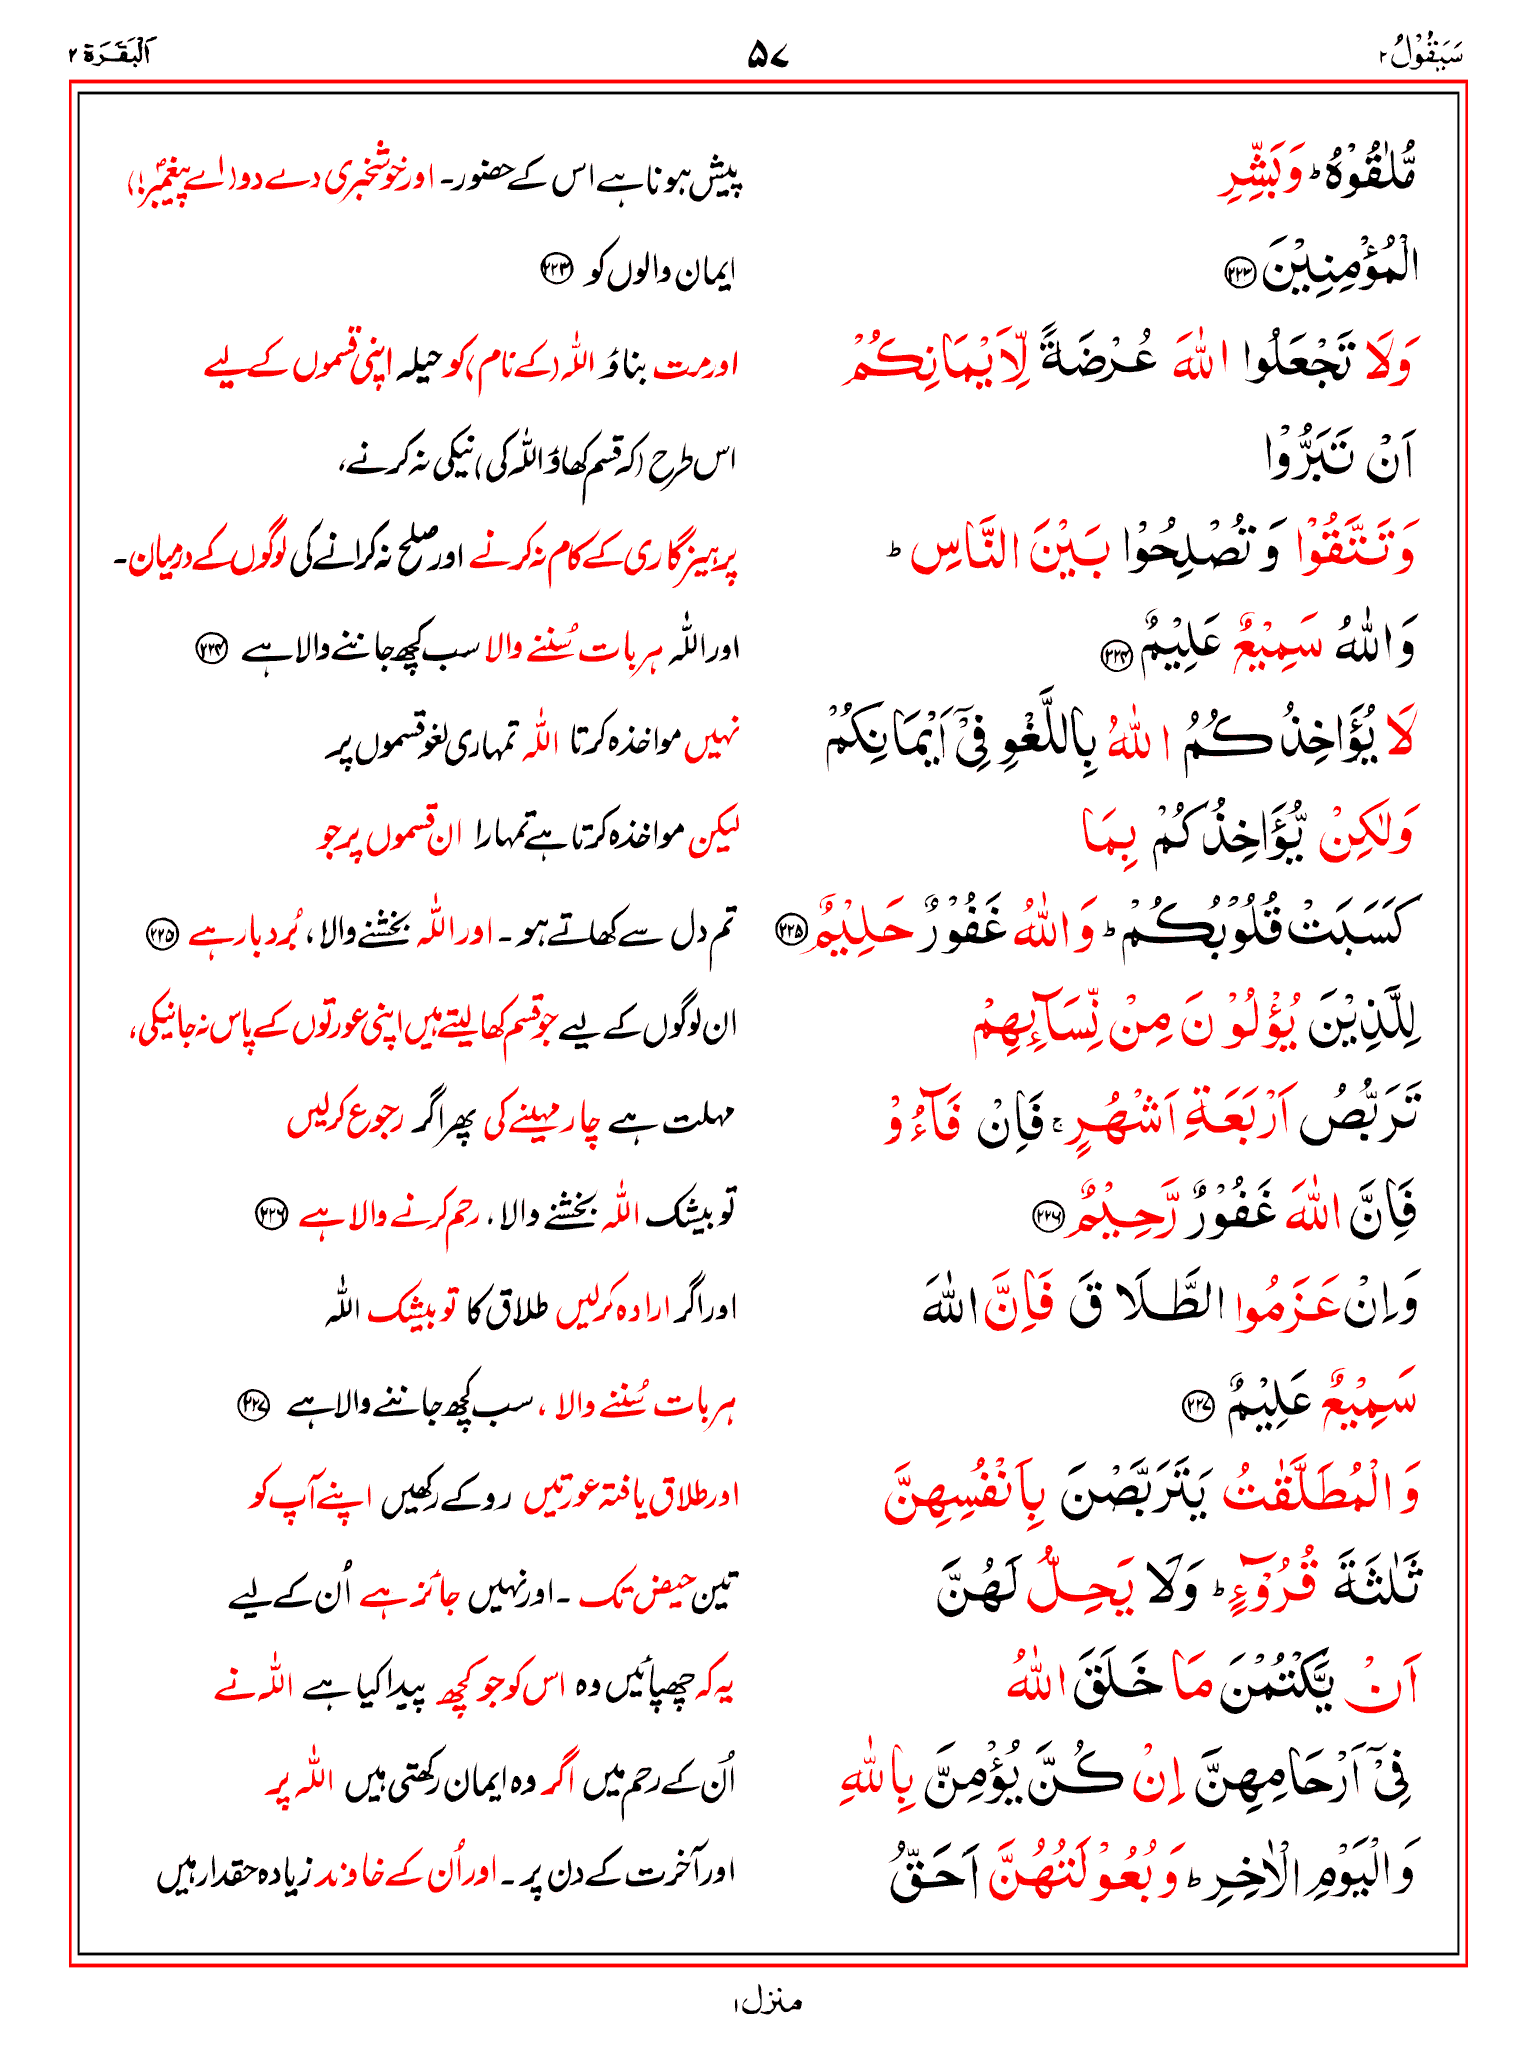 سَيَقُوْلُ ٢ ٥٧ اَلْبَقَرَة ٢
مُّلٰقُوْهُ ؕ وَبَشِّرِ پیش ہونا ہے اس کے حضور۔ اور خوشخبری دے دو (اے پیغمبر!)
الْمُؤْمِنِيْنَ ﴿٢٢٣﴾ ایمان والوں کو ﴿٢٢٣﴾
وَلَا تَجْعَلُوا اللّٰهَ عُرْضَةً لِّاَيْمَانِكُمْ اور مت بناؤ اللہ (کے نام) کو حیلہ اپنی قسموں کے لیے
اَنْ تَبَرُّوْا اس طرح (کہ قسم کھاؤ اللہ کی) نیکی نہ کرنے،
وَتَتَّقُوْا وَتُصْلِحُوْا بَيْنَ النَّاسِ ؕ پرہیزگاری کے کام نہ کرنے اور صلح نہ کرانے کی لوگوں کے درمیان۔
وَاللّٰهُ سَمِيْعٌ عَلِيْمٌ ﴿٢٢٤﴾ اور اللہ ہر بات سُننے والا سب کچھ جاننے والا ہے ﴿٢٢٤﴾
لَا يُؤَاخِذُكُمُ اللّٰهُ بِاللَّغْوِ فِيْٓ اَيْمَانِكُمْ نہیں مواخذہ کرتا اللہ تمہاری لغو قسموں پر
وَلٰكِنْ يُّؤَاخِذُكُمْ بِمَا لیکن مواخذہ کرتا ہے تمہارا ان قسموں پر جو
كَسَبَتْ قُلُوْبُكُمْ ؕ وَاللّٰهُ غَفُوْرٌ حَلِيْمٌ ﴿٢٢٥﴾ تم دل سے کھاتے ہو۔ اور اللہ بخشنے والا، بُردبار ہے ﴿٢٢٥﴾
لِلَّذِيْنَ يُؤْلُوْنَ مِنْ نِّسَآئِهِمْ ان لوگوں کے لیے جو قسم کھا لیتے ہیں اپنی عورتوں کے پاس نہ جانیکی،
تَرَبُّصُ اَرْبَعَةِ اَشْهُرٍ ۚ فَاِنْ فَآءُوْ مہلت ہے چار مہینے کی پھر اگر رجوع کرلیں
فَاِنَّ اللّٰهَ غَفُوْرٌ رَّحِيْمٌ ﴿٢٢٦﴾ تو بیشک اللہ بخشنے والا، رحم کرنے والا ہے ﴿٢٢٦﴾
وَاِنْ عَزَمُوا الطَّلَاقَ فَاِنَّ اللّٰهَ اور اگر ارادہ کرلیں طلاق کا تو بیشک اللہ
سَمِيْعٌ عَلِيْمٌ ﴿٢٢٧﴾ ہر بات سُننے والا، سب کچھ جاننے والا ہے ﴿٢٢٧﴾
وَالْمُطَلَّقٰتُ يَتَرَبَّصْنَ بِاَنْفُسِهِنَّ اور طلاق یافتہ عورتیں روکے رکھیں اپنے آپ کو
ثَلٰثَةَ قُرُوْٓءٍ ؕ وَلَا يَحِلُّ لَهُنَّ تین حیض تک ۔ اور نہیں جائز ہے اُن کے لیے
اَنْ يَّكْتُمْنَ مَا خَلَقَ اللّٰهُ یہ کہ چھپائیں وہ اس کو جو کچھ پیدا کیا ہے اللہ نے
فِيْٓ اَرْحَامِهِنَّ اِنْ كُنَّ يُؤْمِنَّ بِاللّٰهِ اُن کے رحم میں اگر وہ ایمان رکھتی ہیں اللہ پر
وَالْيَوْمِ الْاٰخِرِ ؕ وَبُعُوْلَتُهُنَّ اَحَقُّ اور آخرت کے دن پر۔ اور اُن کے خاوند زیادہ حقدار ہیں
منزل ١